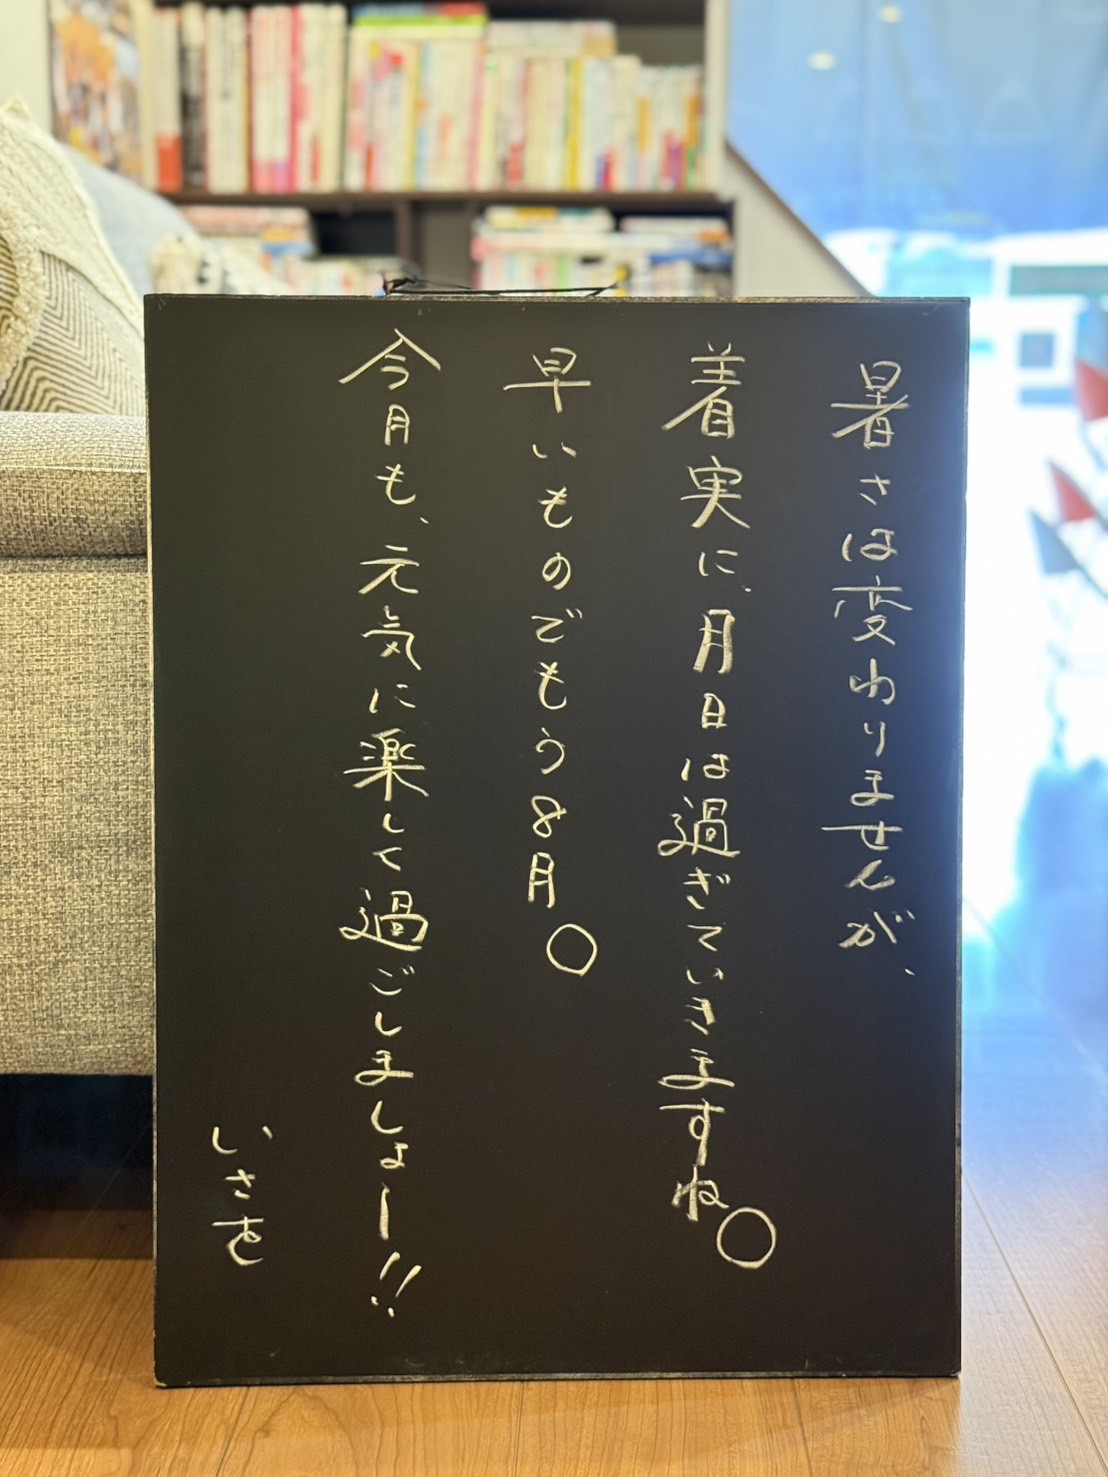 暑さは変わりませんが、
着実に、月日は過ぎていきますね。
早いものでもう8月。
今月も、元気に楽しく過ごしましょー!!
いさを